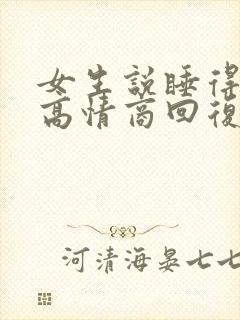 女生説睡得
高情商回復
河清海晏七七